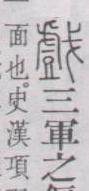 戲三軍之
面也。史漢項